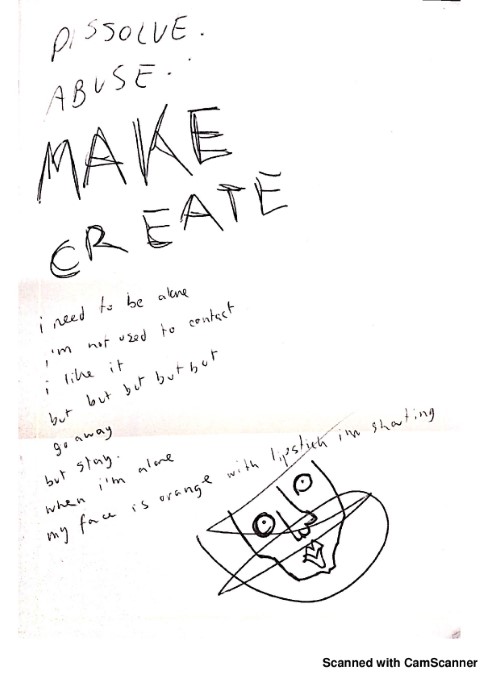 DISSOLVE.
ABUSE..
MAKE
CREATE
i need to be alone
i'm not used to contact
i like it
but but but but but
go away
but stay.
when i'm alone
my face is orange with lipstick im shouting
Scanned with CamScanner